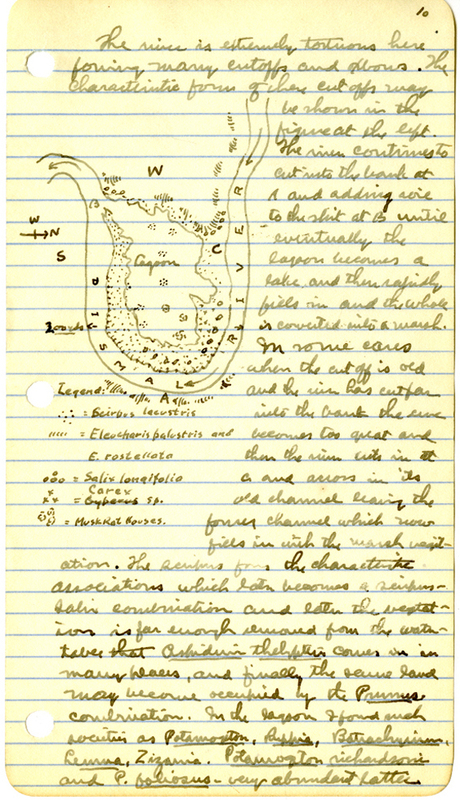 10
The river is extremely tortuous here
forming many cutoffs and oxbows. The
characteristic form of these cut offs may
be shown in the
figure at the left.
The river continues to
cut into the bank at
A and adding soil
to the spit at B until
eventually the
lagoon becomes a
lake and then rapidly
fills in and the whole
is converted into a marsh.
In some cases
when the cut off is old
and the river has cut far
into the bank the curve
becomes too great and
then the river cuts in at
C and across in its
old channel leaving the
former channel which now
fills in with the marsh veget-
ation. The scirpus forms the characteristic
associations which later becomes a scirpus-
Salix combination and later the vegetat-
ion is far enough removed from the water-
table that Aspidium thelypteris comes in in
many places, and finally the same land
may become occupied by the Prunus
combination. In the lagoon I found such
societies as Potamogton, Ruppia, Batrachium,
Lemna, Zizania. Potamogton richardsonii
and P. foliosus - very abundant latter
W
N
S
W
B
C
Lagoon
DISMAL RIVER
A
Legend:
= Scirpus lacustris
= Eleocharis palustris and
E. rostellata
= Salix longifolia
Carex
= Cyperus sp.
= MuskRat Houses.